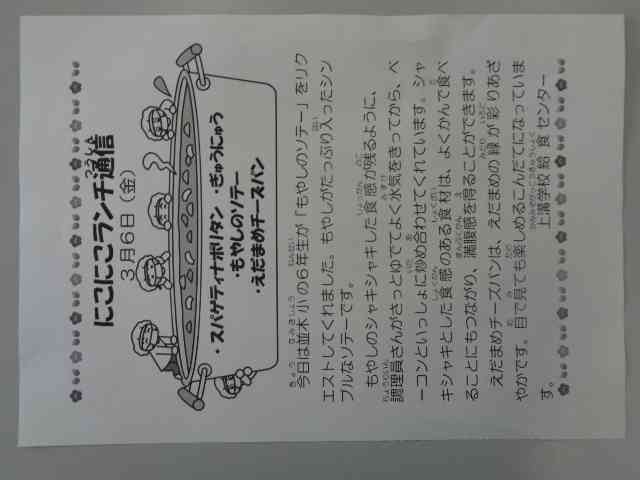 にこにこランチ通信
3月6日(金)
・スパゲティナポリタン・ぎゅうにゅう
・もやしのソテー
えだまめチーズパン
今日は並木小の6年生が「もやしのソテー」をリク
エストしてくれました。もやしがたっぷり入ったシン
プルなソテーです。
もやしのシャキシャキした食感が残るように、
調理員さんがさっとゆでてよく水気をきってから、ベ
ーコンといっしょに炒め合わせてくれています。シャ
キシャキとした食感のある食材は、よくかんで食べ
ることにもつながり、満腹感を得ることができます。
えだまめチーズパンは、えだまめの緑が彩りあざ
やかです。目で見ても楽しめるこんだてになっていま
す。
上溝学校給食センター